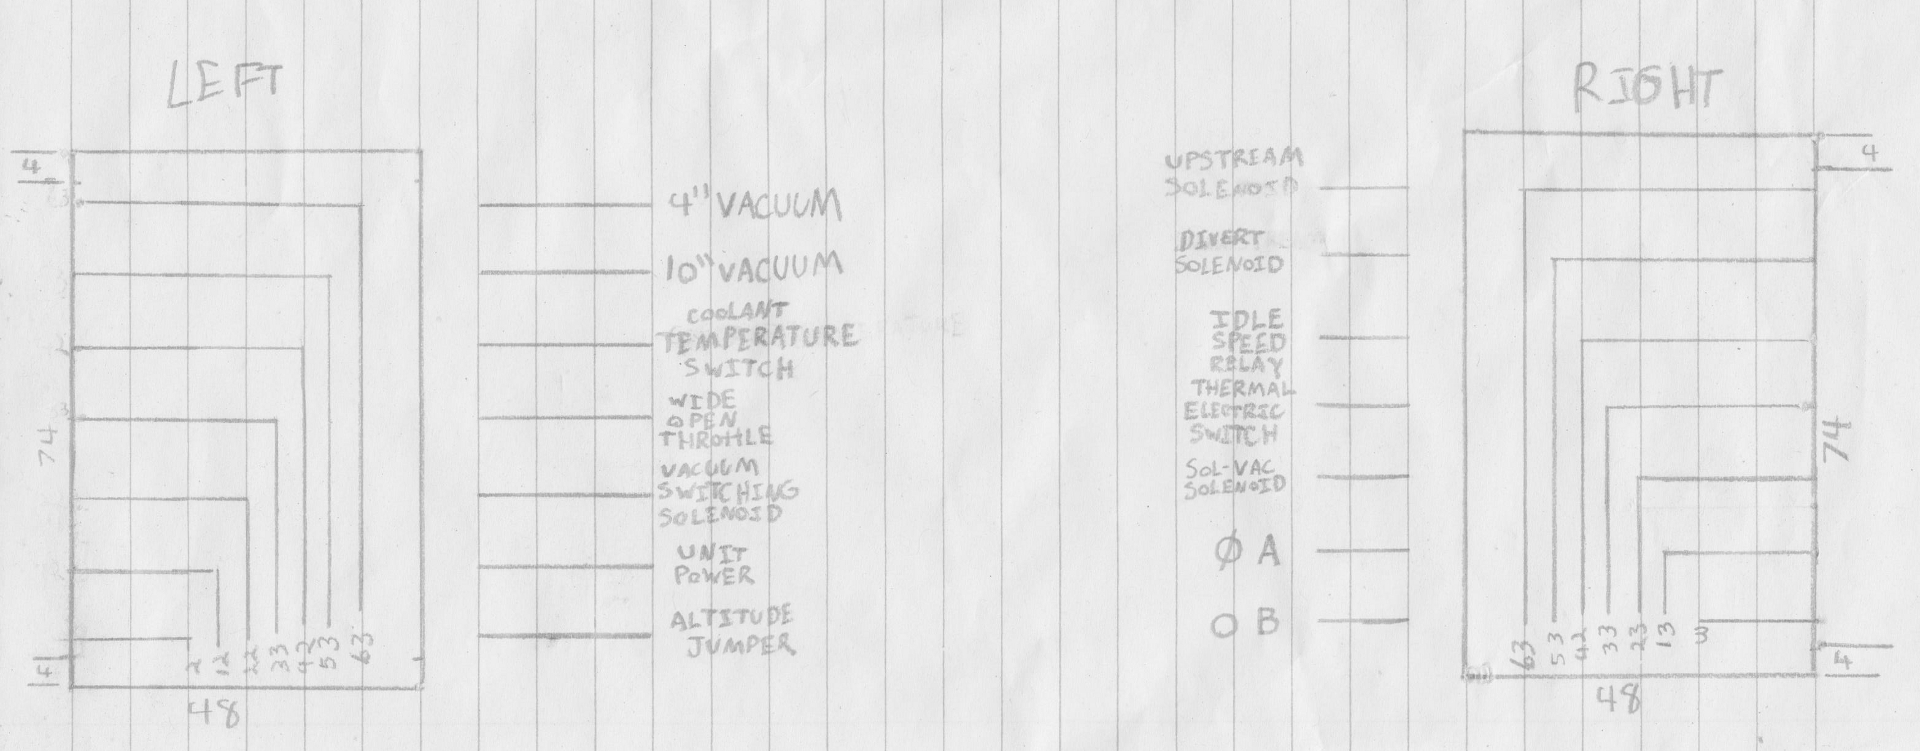 LEFT
4
74
4
2
12
22
33
42
53
63
48
4" VACUUM
10" VACUUM
COOLANT
TEMPERATURE
SWITCH
WIDE
OPEN
THROTTLE
VACUUM
SWITCHING
SOLENOID
UNIT
POWER
ALTITUDE
JUMPER
UPSTREAM
SOLENOID
DIVERT
SOLENOID
IDLE
SPEED
RELAY
THERMAL
ELECTRIC
SWITCH
SOL-VAC
SOLENOID
Ø A
O B
RIGHT
4
74
4
63
53
42
33
23
13
3
48